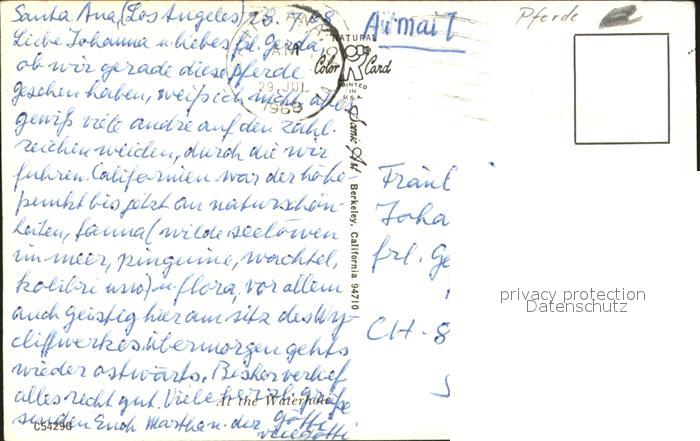 Santa Ana, (Los Angeles) 28.
Liebe Johanna u. liebes frl. Gerda,
ob wir gerade diese Pferde
gesehen haben, weiß ich nicht, aber
gewiß viele andre auf den zahl-
reichen weiden, durch die wir
fuhren. Californien war der höhe-
punkt bis jetzt an naturschön-
heiten, fauna (wilde seelöwen
im meer, pinguine, wachtel,
kolibri usw) u. flora, vor allem
auch geistig hier am sitz des Wy-
cliffwerkes. übermorgen gehts
wieder ostwärts. Bisher verlief
alles recht gut. Viele herzl. grüße
senden Euch Marthan. der götti
At the Waterhole
C54290
29. JUL
1968
Airmail
NATURAL
Color Card
PRINTED
IN
U.S.A.
Scenic Art Berkeley, California 94710
Pferde
Fräul
Joha
frl. Ge
CH-8
privacy protection
Datenschutz